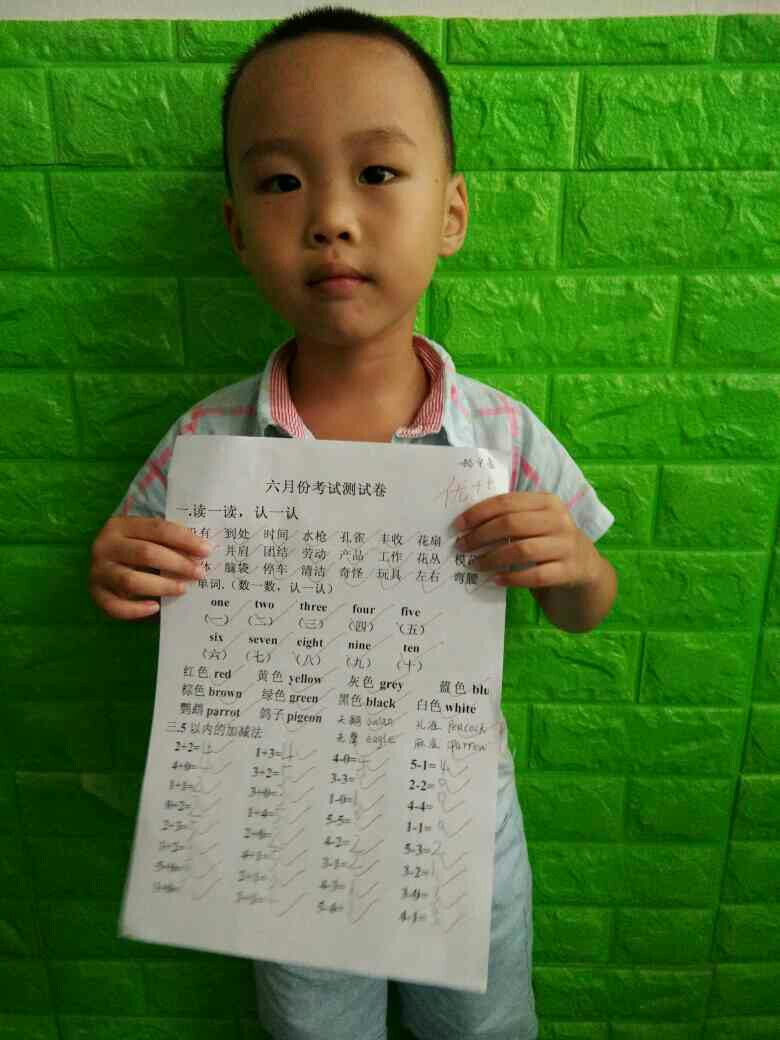 六月份考试测试卷
一.读一读，认一认
有 到处 时间 水枪 孔雀 丰收 花扇
并肩 团结 劳动 产品 工作 花丛
体 脑袋 停车 清洁 奇怪 玩具 左右 弯腰
单词.（数一数，认一认）
one two three four five
（一） （二） （三） （四） （五）
six seven eight nine ten
（六） （七） （八） （九） （十）
红色 red 黄色 yellow 灰色 grey 蓝色 blu
棕色 brown 绿色 green 黑色 black 白色 white
鹦鹉 parrot 鸽子 pigeon 天鹅 swan 孔雀 peacock
老鹰 eagle 麻雀 sparrow
三.5 以内的加减法
2+2= 1+3=4 4-0= 5-1=4
4+0= 3+2= 3-3= 2-2=0
1+1= 3+0= 1-0= 4-4=
0+2= 1+4= 5-5= 1-1=
2+3= 2+0= 4-2=2 5-3=2
4+1= 3-1=2 3-2=1
2+1= 4-3= 3-0=
5-4= 4-1=